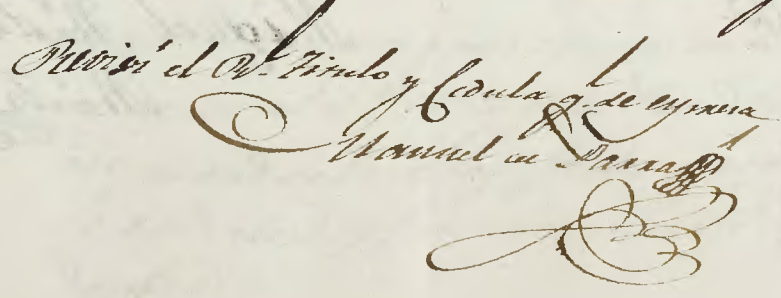 Recivi el Rl. Titulo y Cedula q. se expresa
Manuel de Parra